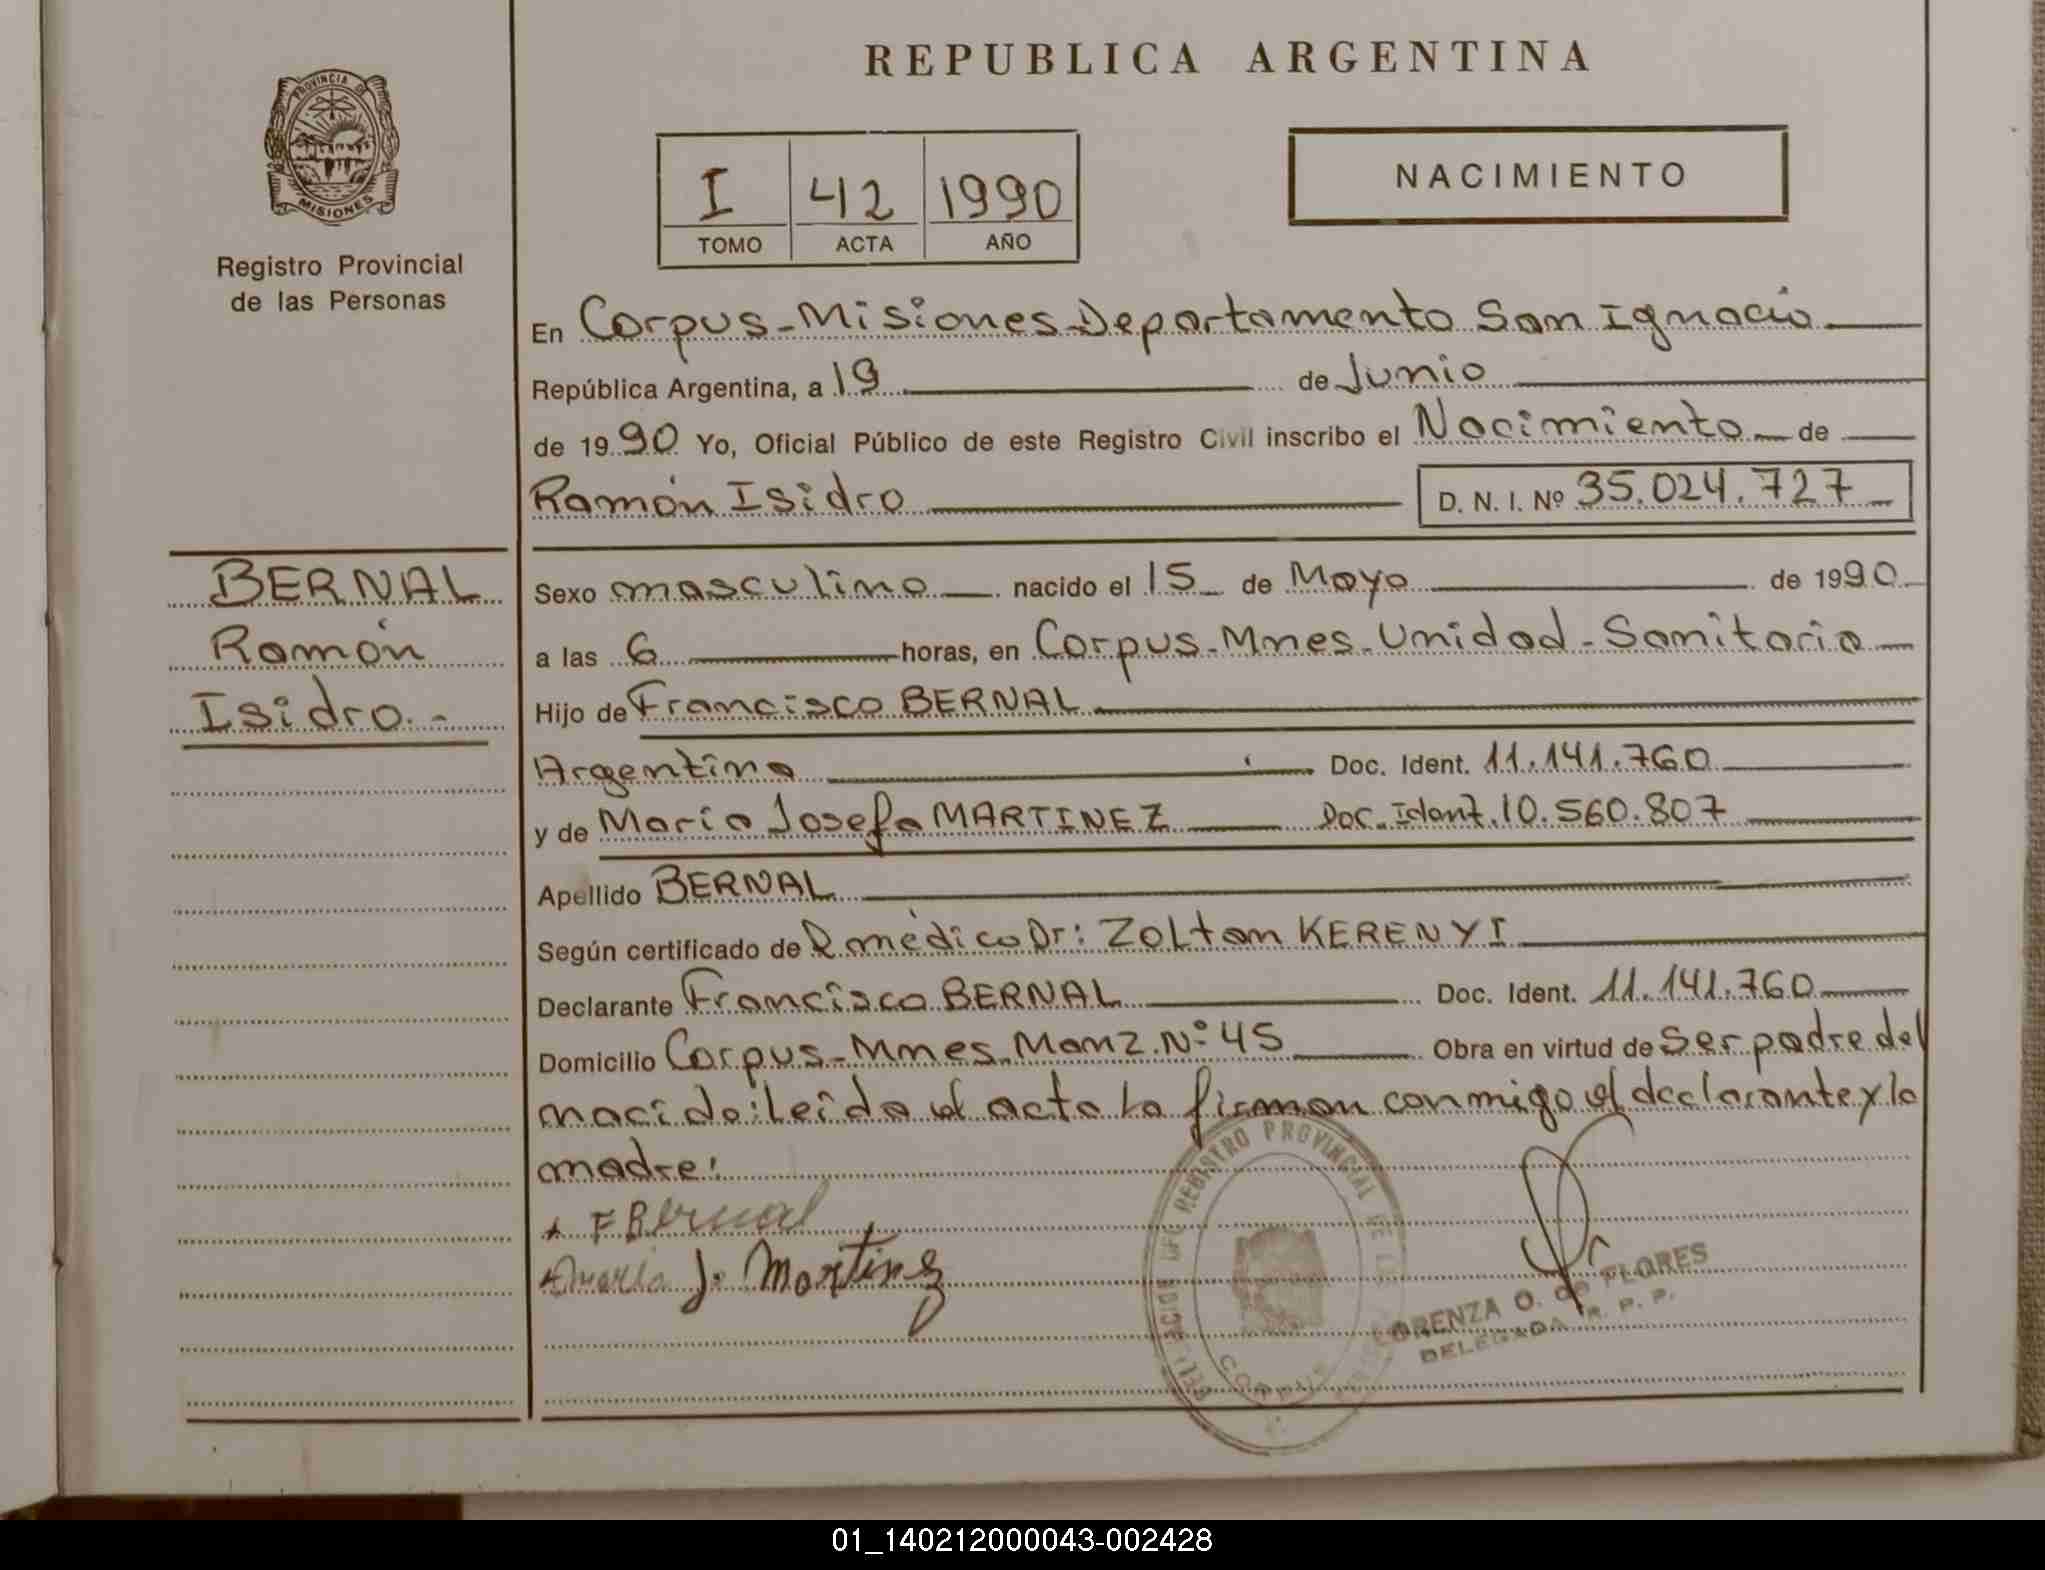 REPUBLICA ARGENTINA
PROVINCIA DE
MISIONES
Registro Provincial
de las Personas
I 42 1990
TOMO ACTA AÑO
NACIMIENTO
En Corpus-Misiones Departamento San Ignacio
República Argentina, a 19 de Junio
de 1990 Yo, Oficial Público de este Registro Civil inscribo el Nacimiento de
Ramón Isidro D. N. I. Nº 35.024.727
BERNAL
Ramón
Isidro.-
Sexo masculino nacido el 15 de Mayo de 1990
a las 6 horas, en Corpus-Mnes-Unidad-Sanitaria
Hijo de Francisco BERNAL
Argentina Doc. Ident. 11.141.760
y de María Josefa MARTINEZ Doc. Ident. 10.560.807
Apellido BERNAL
Según certificado de médico Dr: ZOLtan KERENYI
Declarante Francisco BERNAL Doc. Ident. 11.141.760
Domicilio Corpus-Mnes. Manz. Nº 45 Obra en virtud de Ser padre del
nacido: Leída el acta la firman conmigo el declarante y la
madre:
F Bernal
Maria J. Martinez
REGISTRO PROVINCIAL DE LAS
CORPUS
LORENZA O. de FLORES
DELEGADA R. P. P.
01_140212000043-002428